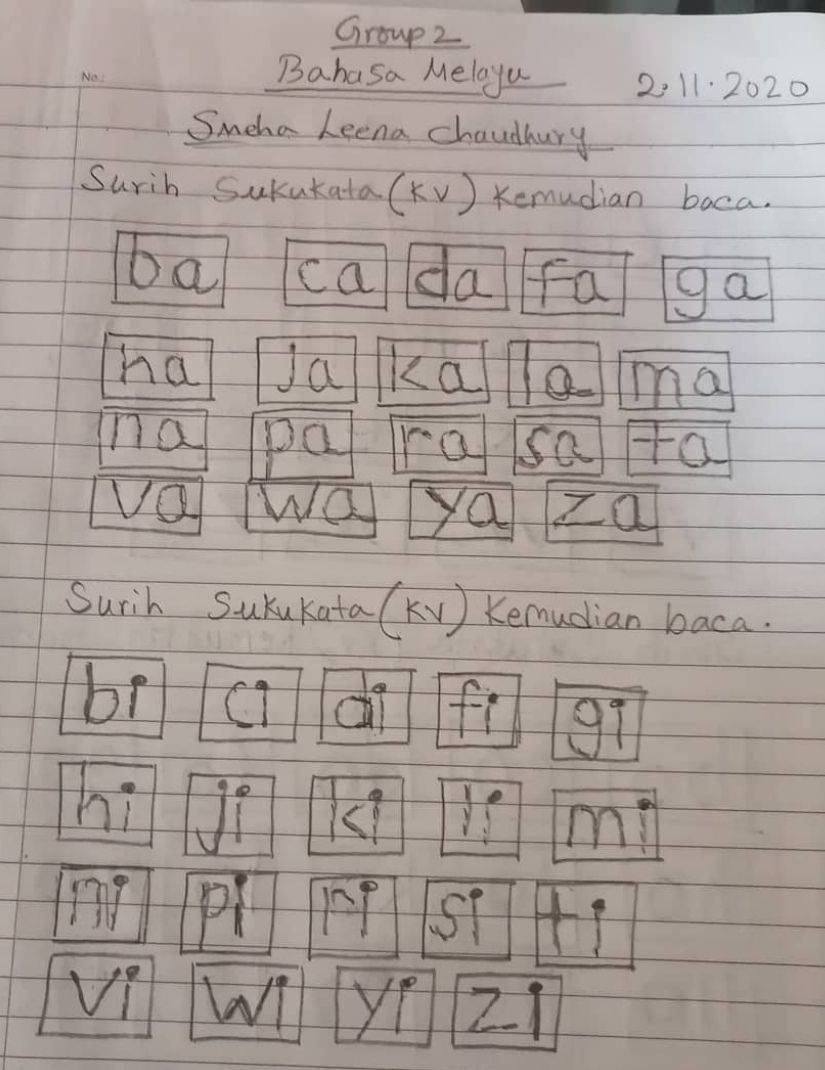 Group 2
No:
Bahasa Melayu 2.11.2020
Smeha Leena Chaudhury
Surih Sukukata (KV) Kemudian baca.
ba ca da fa ga
ha Ja ka la ma
na pa ra sa ta
va wa ya za
Surih Sukukata (KV) Kemudian baca.
bi ci di fi gi
hi ji ki li mi
ni pi ri si ti
vi wi yi zi